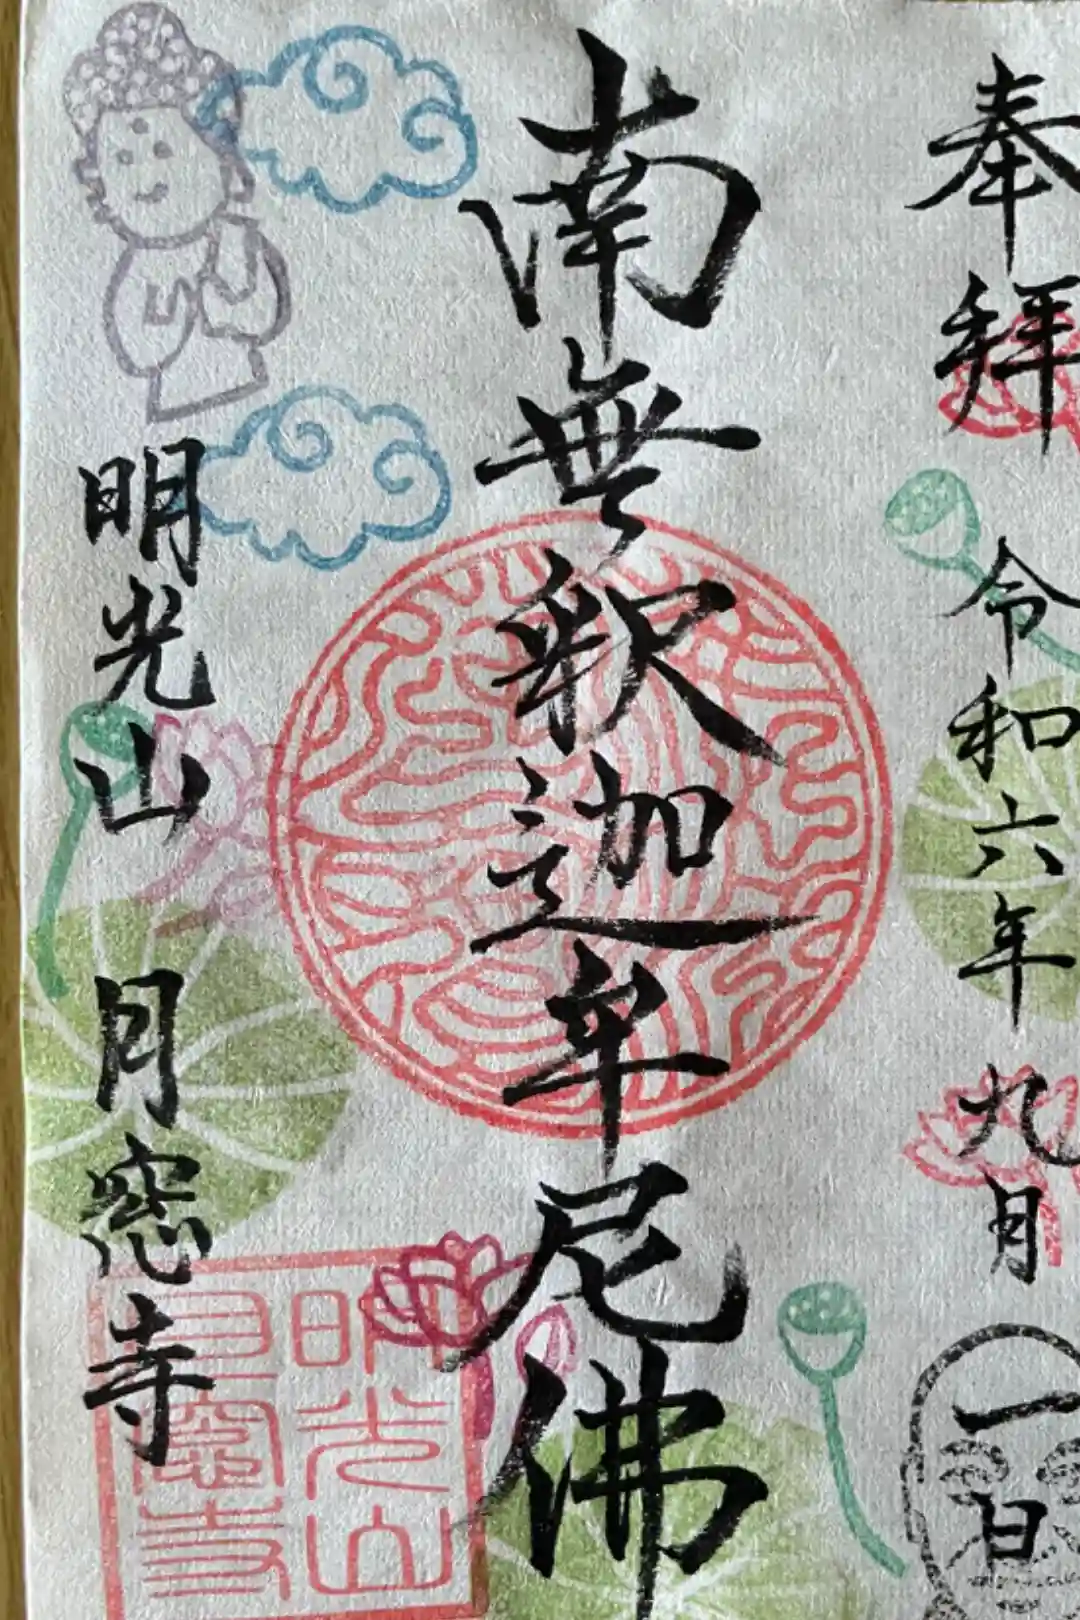 奉拜 令和六年九月一日
南無釈迦牟尼佛
明光山 月窓寺
明光山
月窓寺